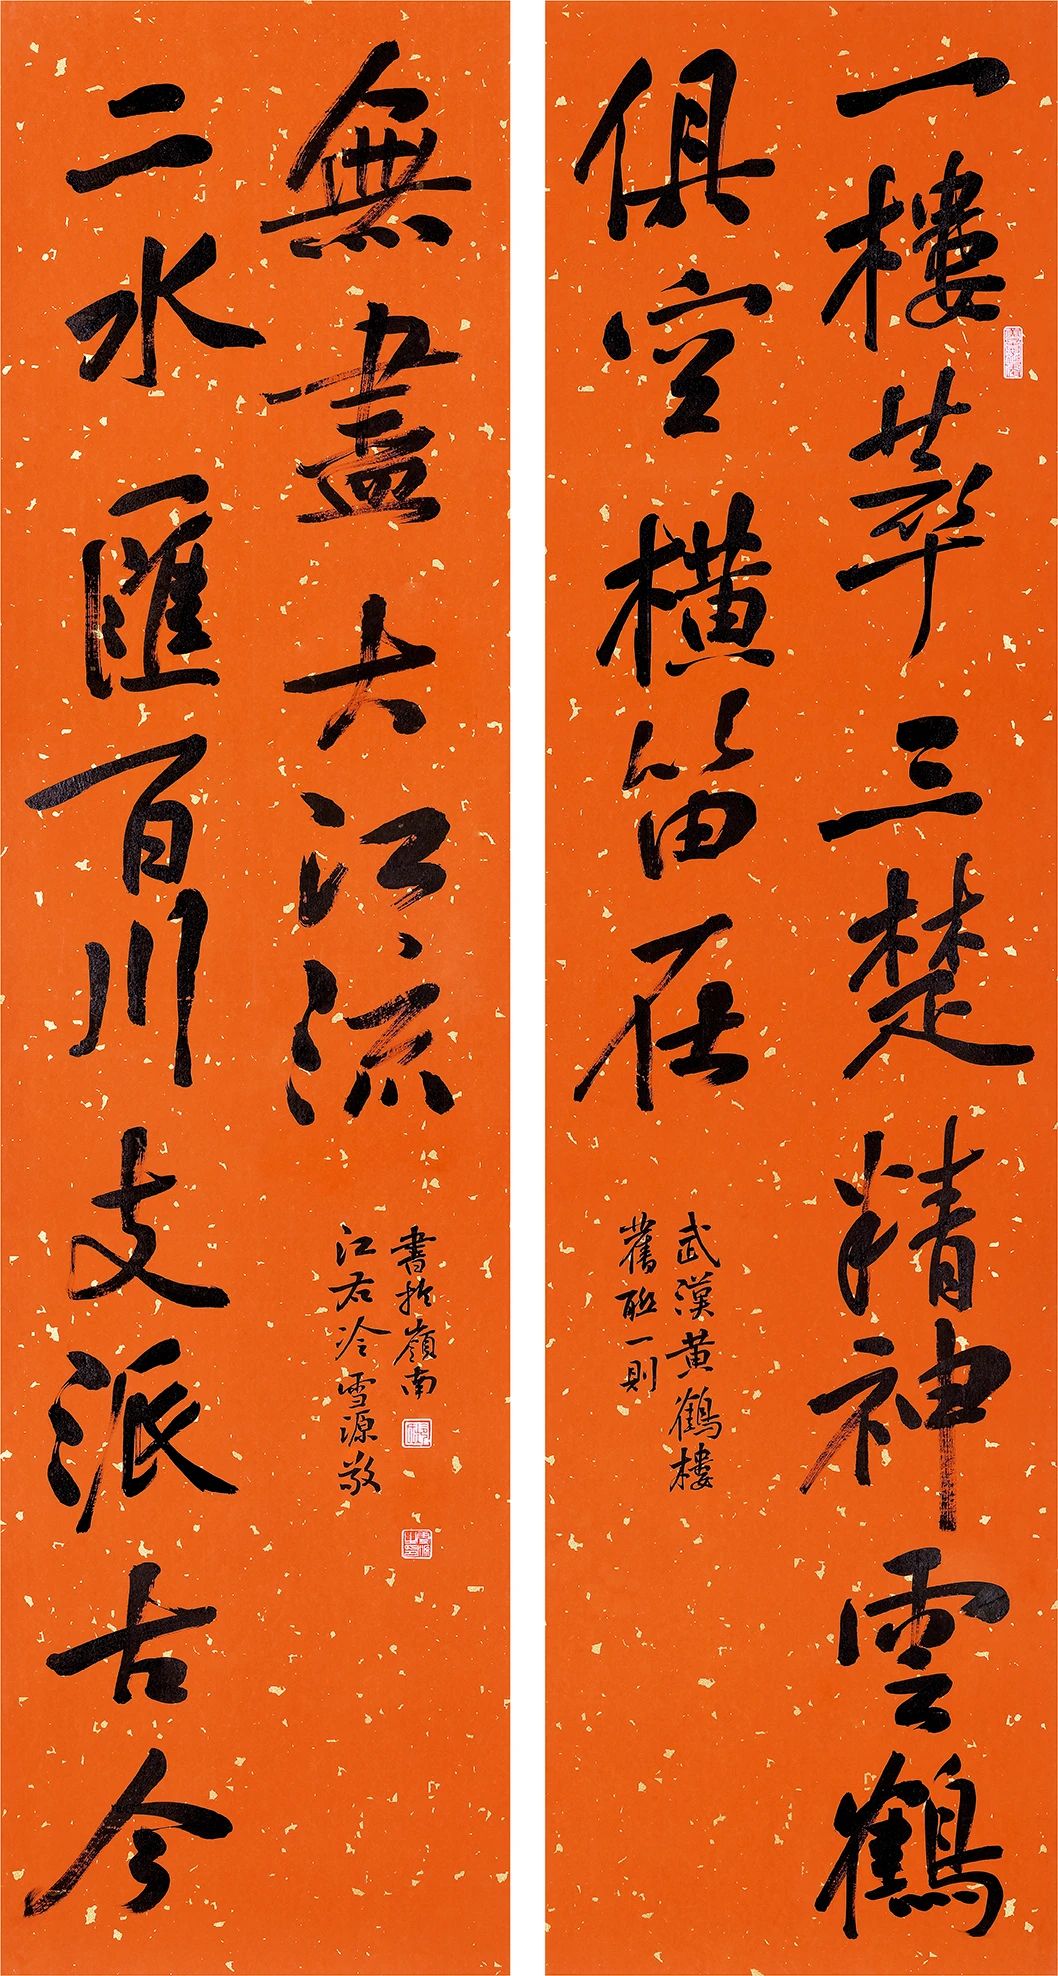 一樓萃三楚精神雲鶴
俱空橫笛在
武漢黄鶴樓
舊聯一則
二水匯百川支派古今
無盡大江流
書於嶺南
江右冷雪源敬